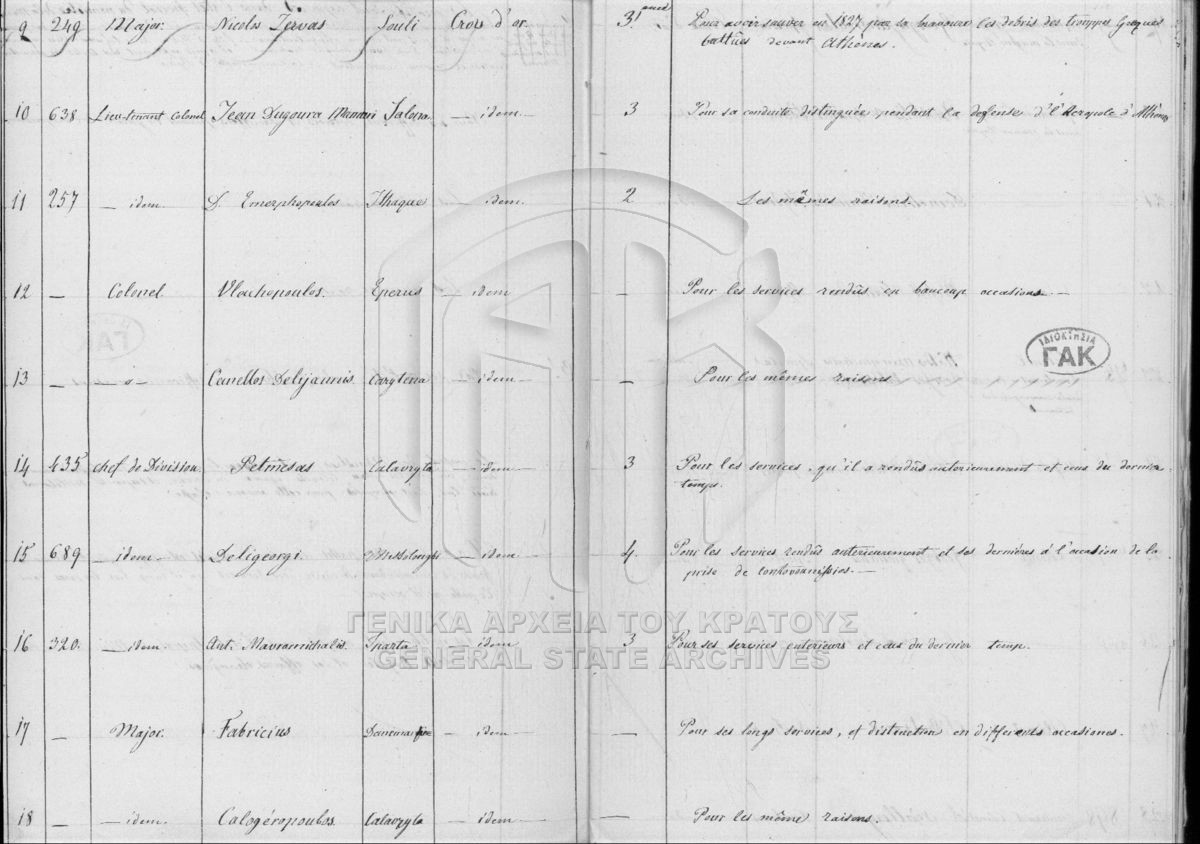 9 249 Major. Nicolos Zervas Souli Crois d'or 3 Pour avoir sauver en 1827 par sa bravoure les debris des trouppes Grecques
battues devant Athènes.
10 638 Lieu-tenant Colonel Jean Dugoura Mamuri Salona — idem — 3 Pour sa conduite distinguée pendant la defense d'l'Acropole d'Athènes
11 257 — idem. D. Emorphopoulos Ithaques — idem. 2 Les mêmes raisons.
12 — Colonel Vlachopoulos. Eperus — idem — Pour les services rendûs en baucoup occasions. —
13 — — o — Canellos Delijannis. Carytena — idem — — Pour les mêmes raisons
ΙΔΙΟΚΤΗΣΙΑ
ΓΑΚ
14 435 chef de Division. Petmesas Calavryta — idem — 3 Pour les services, qu'il a rendûs anterieurement et ceus du dernier
temps.
15 689 — idem — Deligeorgi. Messolonghi — idem — 4 Pour les services rendûs anterieurement et ses dernières à l'occasion de la
prise de —
ΓΕΝΙΚΑ ΑΡΧΕΙΑ ΤΟΥ ΚΡΑΤΟΥΣ
16 320. — idem. Ant. Mavromichalis. Sparta — idem 3 Pour ses services anterieurs et ceus du dernier temp.
GENERAL STATE ARCHIVES
17 — Major. Fabricius — idem — — Pour ses longs services, et distinction en differents occasiones.
18 — — idem. Calogéropoulos. Calavryta — idem — — Pour les même raisons.